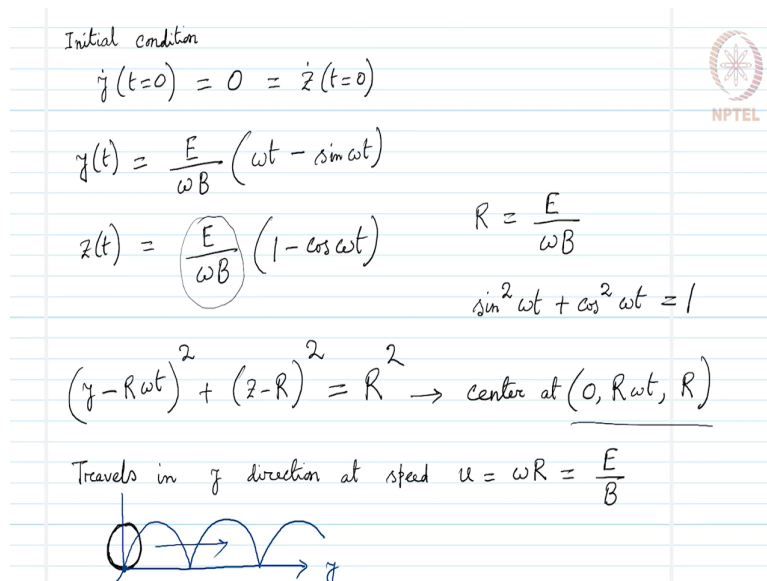 Initial condition
NPTEL
ẏ(t=0) = 0 = ż(t=0)
y(t) = E/ωB (ωt − sin ωt)
z(t) = E/ωB (1 − cos ωt)
R = E/ωB
sin² ωt + cos² ωt = 1
(y − Rωt)² + (z − R)² = R² → center at (0, Rωt, R)
Travels in y direction at speed u = ωR = E/B
y